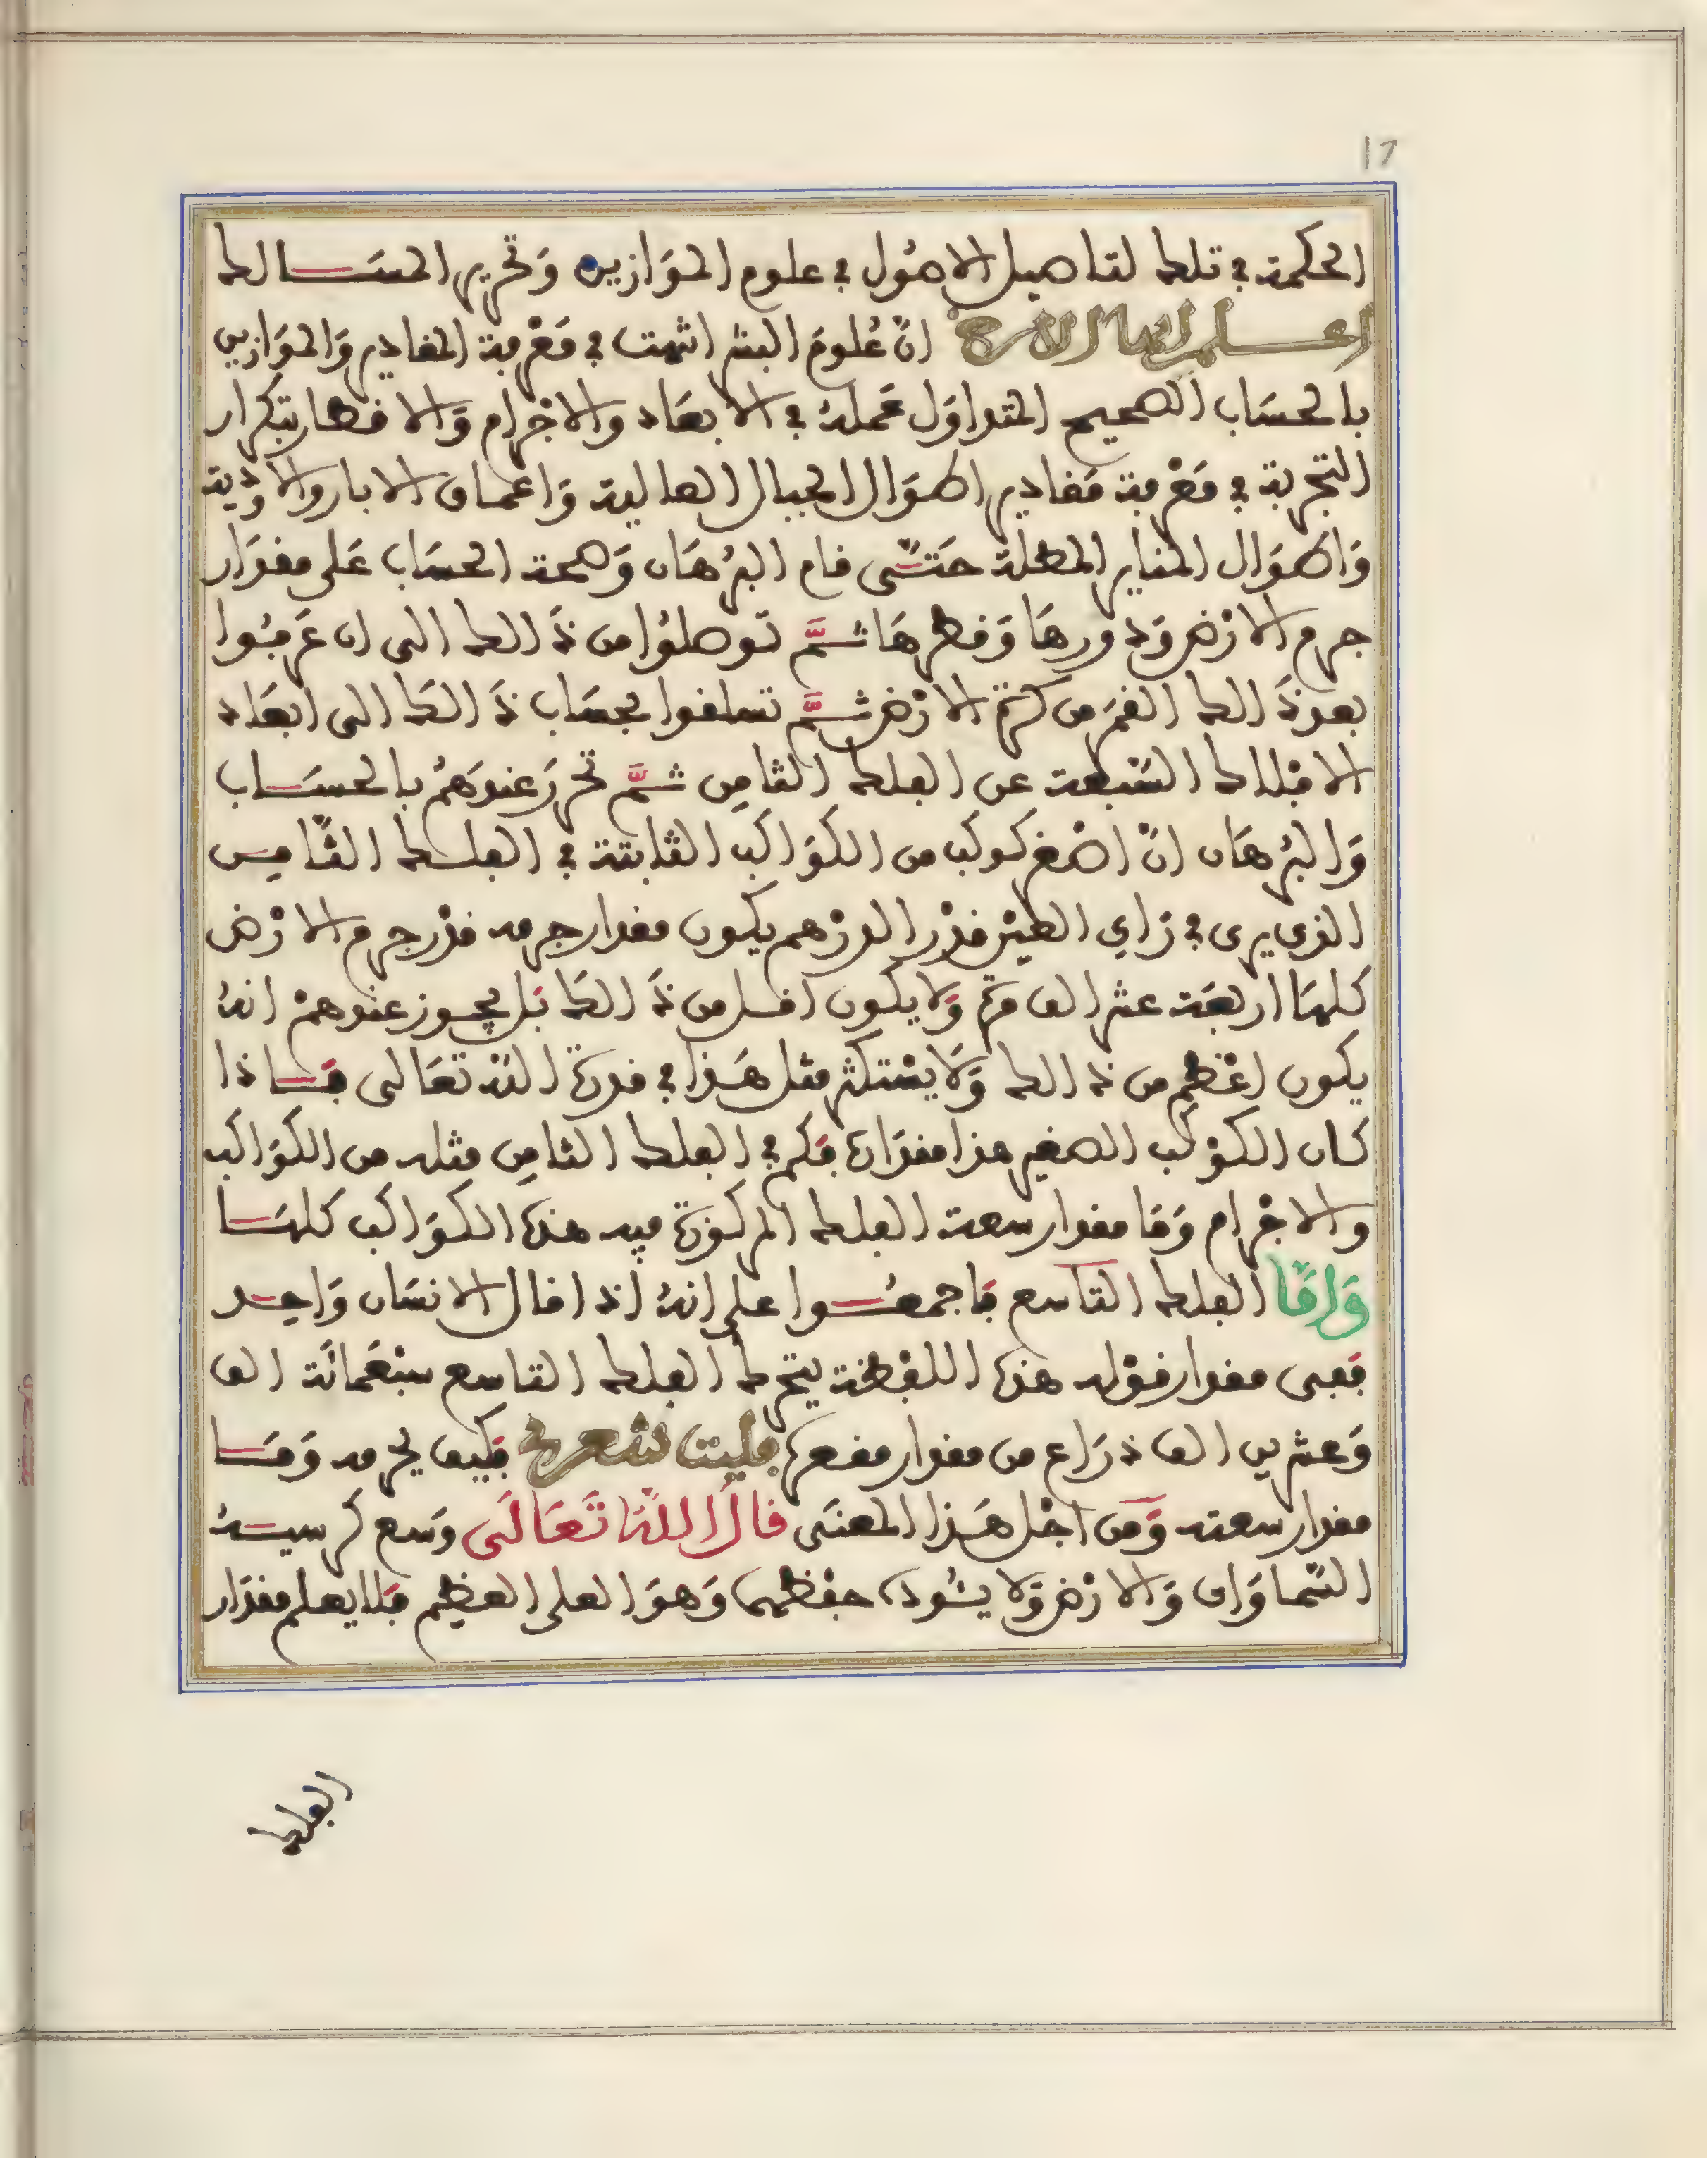 17
الحكمة في تلك التفاصيل الاصُول في علوم الموَازين وَتحرير المسَالك
اعلم ايها الاخ انّ عُلومَ البشر انتهت في مَعْرفة المقادير وَالموَازين
بالحسَاب الصحيح المتداوَل عَملهُ في الابعَاد والاجْرام وَالاقطار بتكرار
التجربة في مَعْرفة مَقادير اطوَال الجبال العالية وَاعماق الابار والاوْدية
وَاطوَال المناير المطلة حَتّى قام البُرهَان وَصحة الحسَاب عَلى مقدَار
جرم الارْض وَدورهَا وَقطرهَا ثمَّ توصلوُا من ذَالك الى ان عَرفوُا
بعد ذَالك القمَر من كرَة الارْض ثمَّ تسلقوا بحسَاب ذَالك الى ابعَاد
الافْلاك السَّبعة عن الفلك الثامِن ثمَّ تحرّرَ عندَهُم بالحسَاب
وَالبُرهَان انّ اصْغر كوكب من الكوَاكب الثابتة في الفلك الثّامِن
الذي يرى في رَاي العَيْن قدْر الدرْهم يكون مقدار جرمه قدْر جرم الارْض
كلهَا اربعَة عشر الف مرة وَلا يكون اقل من ذَالك بَل يجوز عندهمْ انهُ
يكون اعْظم من ذَالك وَلا يسْتكثر مثل هَذا في قدرَة اللَّه تعَالى فَاذا
كان الكوْكب الصغير هذا مقدَاره فَكم في الفلك الثامِن مثله من الكوَاكب
والاجْرام وَمَا مقدار سعة الفلك المركوزَة فيه هذه الكوَاكب كلهَا
وَامَّا الفلك التاسع فَاجمعُوا على انهُ اذا قال الانسَان وَاحِد
فَفى مقدار قوْله هذه اللفْظة يتحرك الفلك التاسع سبْعَمائَة الف
وَعشرين الف ذرَاع من مقدار مقعره فليت شعري فَكيف بجرمه وَمَا
مقدار سعته وَمن اجْل هَذا المعنَى قالَ اللَّهُ تَعَالَى وَسع كرسيهُ
السَّماوَات وَالارْض وَلا يئُوده حفْظهما وَهوَ العلى العظيم فَلا يعلم مقدَار
الفلك